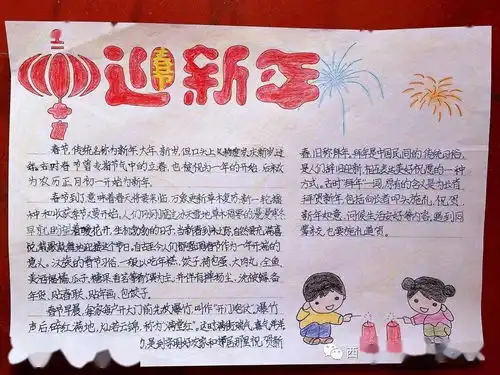 迎新年
春节
春节,传统名称为新年、大年、新岁,但口头上又称度岁、庆新岁、过
年。古时春节曾专指节气中的立春,也被视为一年的开始,后来改
为农历正月初一开始为新年。
春节到了,意味着春天将要来临,万象更新草木复苏,新一轮播
种和收获季节又要开始。人们刚刚度过冰天雪地草木凋零的漫漫寒冬
早就盼望着春暖花开的日子,当新春到来之际,自然要充满喜
悦载歌载舞地迎接这个节日。自古至今人们都沿用春节作为一年开端的
意义。汉族的春节习俗,一般以吃年糕、饺子、糍粑、汤圆、大肉丸、全鱼、
美酒、福橘、瓜子、糖果等为主,并伴有掸扬尘、洗被褥、备
年货、贴春联、贴年画、包饺子。
春节早晨,每家每户开大门前先放爆竹,叫作“开门炮仗”。爆竹
声后碎红满地,灿若云锦,称为“满堂红”。这时满街瑞气,喜气洋洋
春,旧称拜年。拜年是中国民间的传统习俗,
是人们辞旧迎新、相互表达美好祝愿的一种
方式。古时“拜年”一词,原有的含义是为长者
拜贺新年,包括向长者叩头施礼,祝贺
新年如意,问候生活安好等内容。遇到同
辈亲友,也要施礼道贺。
西